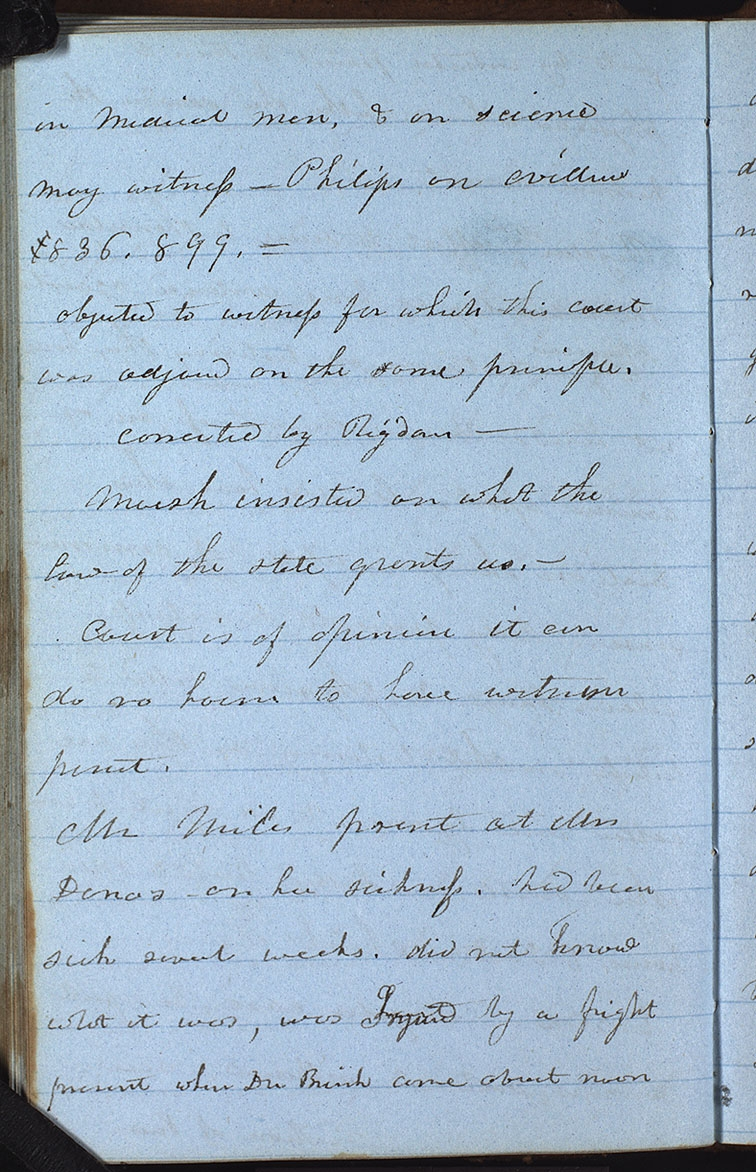 on medical men, & on science
may witness — Philips on evidince
& 836. 899. —
objected to witness for which this court
was adjornd on the same principle.
corrected by Rigdon —
Marsh insisted on what the
law of the state grants us. —
Court is of opinion it can
do no harm to have witnesses
presnt.
Mr Miles presnt at Mrs
Danas on her sickness. had been
sick sevral weeks. did not know
what it was, was Injurd by a fright
present when Dr Brink came about noon